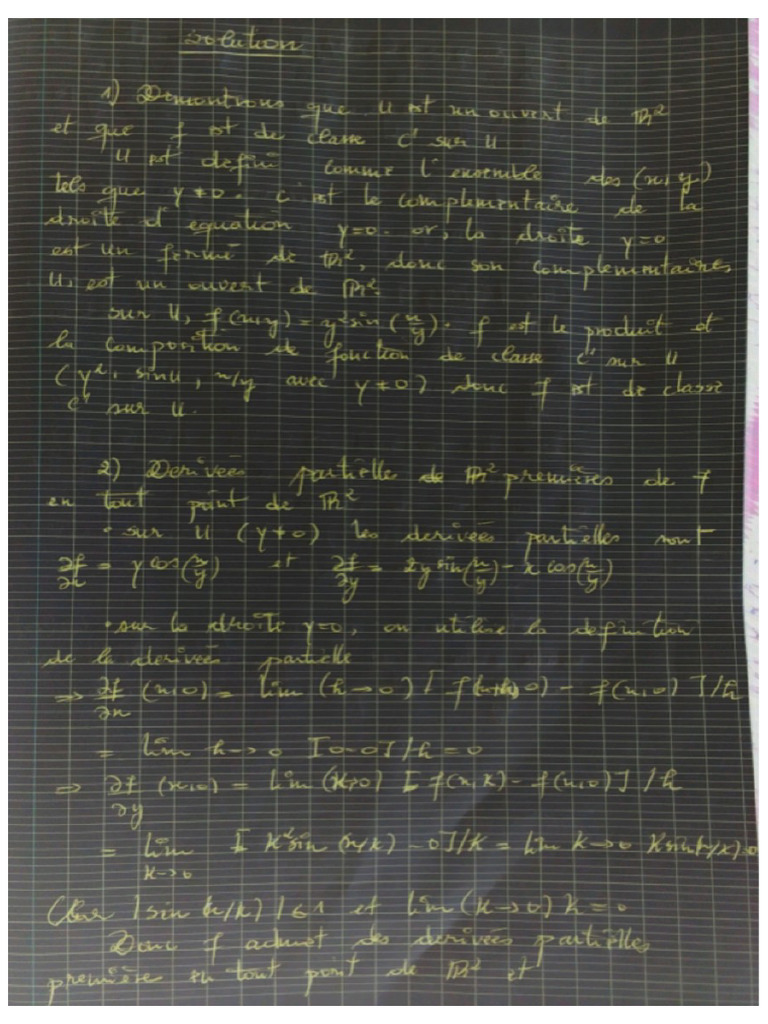 Solution
1) Demontrons que U est un ouvert de ℝ²
et que f est de classe C¹ sur U.
U est defini comme l'ensemble des (x, y)
tels que y ≠ 0. C'est le complementaire de la
droite d'equation y=0. or, la droite y=0
est un fermé de ℝ², donc son complementaires
U, est un ouvert de ℝ².
sur U, f(x,y) = y² sin(x/y). f est le produit et
la composition de fonction de classe C¹ sur U
(y², sin u, x/y avec y ≠ 0) donc f est de classe
C¹ sur U.
2) Derivées partielles de ℝ² premières de f
en tout point de ℝ²
• sur U (y ≠ 0) les derivées partielles sont
∂f/∂x = y cos(x/y) et ∂f/∂y = 2y sin(x/y) - x cos(x/y)
• sur la droite y=0, on utilise la definition
de la derivées partielle
⇒ ∂f/∂x (x,0) = lim (h→0) [f(x+h,0) - f(x,0)]/h
= lim h→0 [0-0]/h = 0
⇒ ∂f/∂y (x,0) = lim (k→0) [f(x,k) - f(x,0)]/h
= lim k→0 [k² sin(x/k) - 0]/k = lim k→0 k sin(x/k)=0
Car |sin(x/k)| ≤ 1 et lim (k→0) k = 0
Donc f admet des derivées partielles
première en tout point de ℝ² et